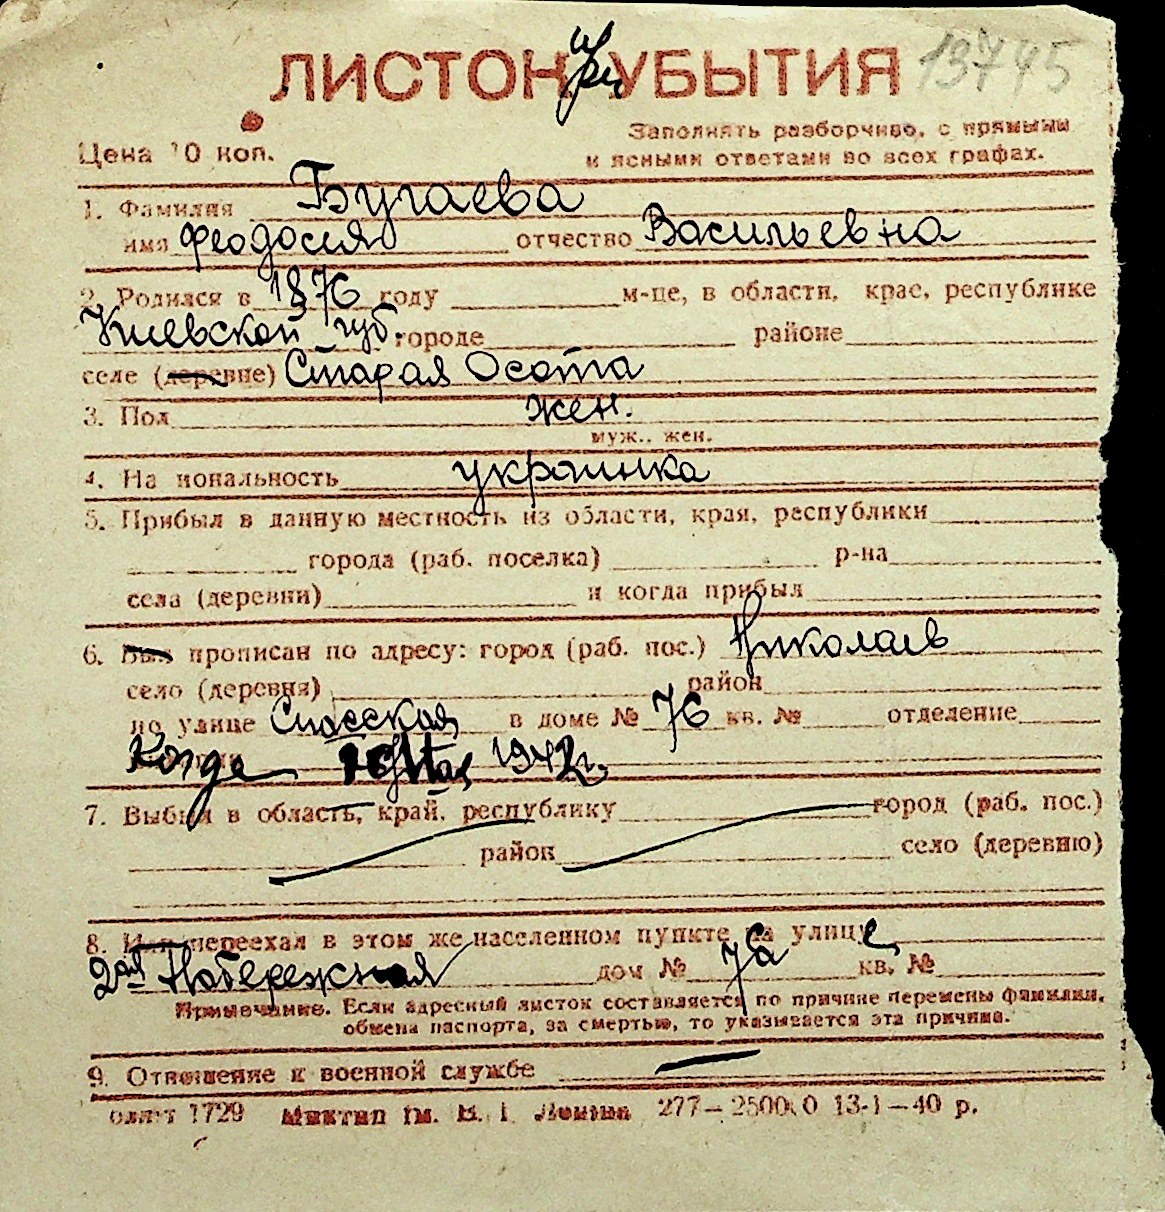 ЛИСТОН при УБЫТИЯ 13745
Заполнять разборчиво, с прямыми
Цена 10 коп. и ясными ответами во всех графах.
1. Фамилия Бугаева
имя Феодосия отчество Васильевна
2. Родился в 1876 году м-це, в области, крае, республике
Киевской губ городе районе
селе (деревне) Старая Осота
3. Пол жен.
муж.. жен.
4. На иональность украинка
5. Прибыл в данную местность из области, края, республики
города (раб. поселка) р-на
села (деревни) и когда прибыл
6. Был прописан по адресу: город (раб. пос.) Николаев
село (деревня) район
по улице Спасская в доме № 76 кв. № отделение
Когда 1942г.
7. Выбыл в область, край, республику город (раб. пос.)
район село (деревню)
8. Или переехал в этом же населенном пункте на улице
2ая Набережная дом № 7а кв. №
Примечание. Если адресный листок составляется по причине перемены фамилии,
обмена паспорта, за смертью, то указывается эта причина.
9. Отношение к военной службе
1729 им. В. І Леніна 277—25000 13-1—40 р.